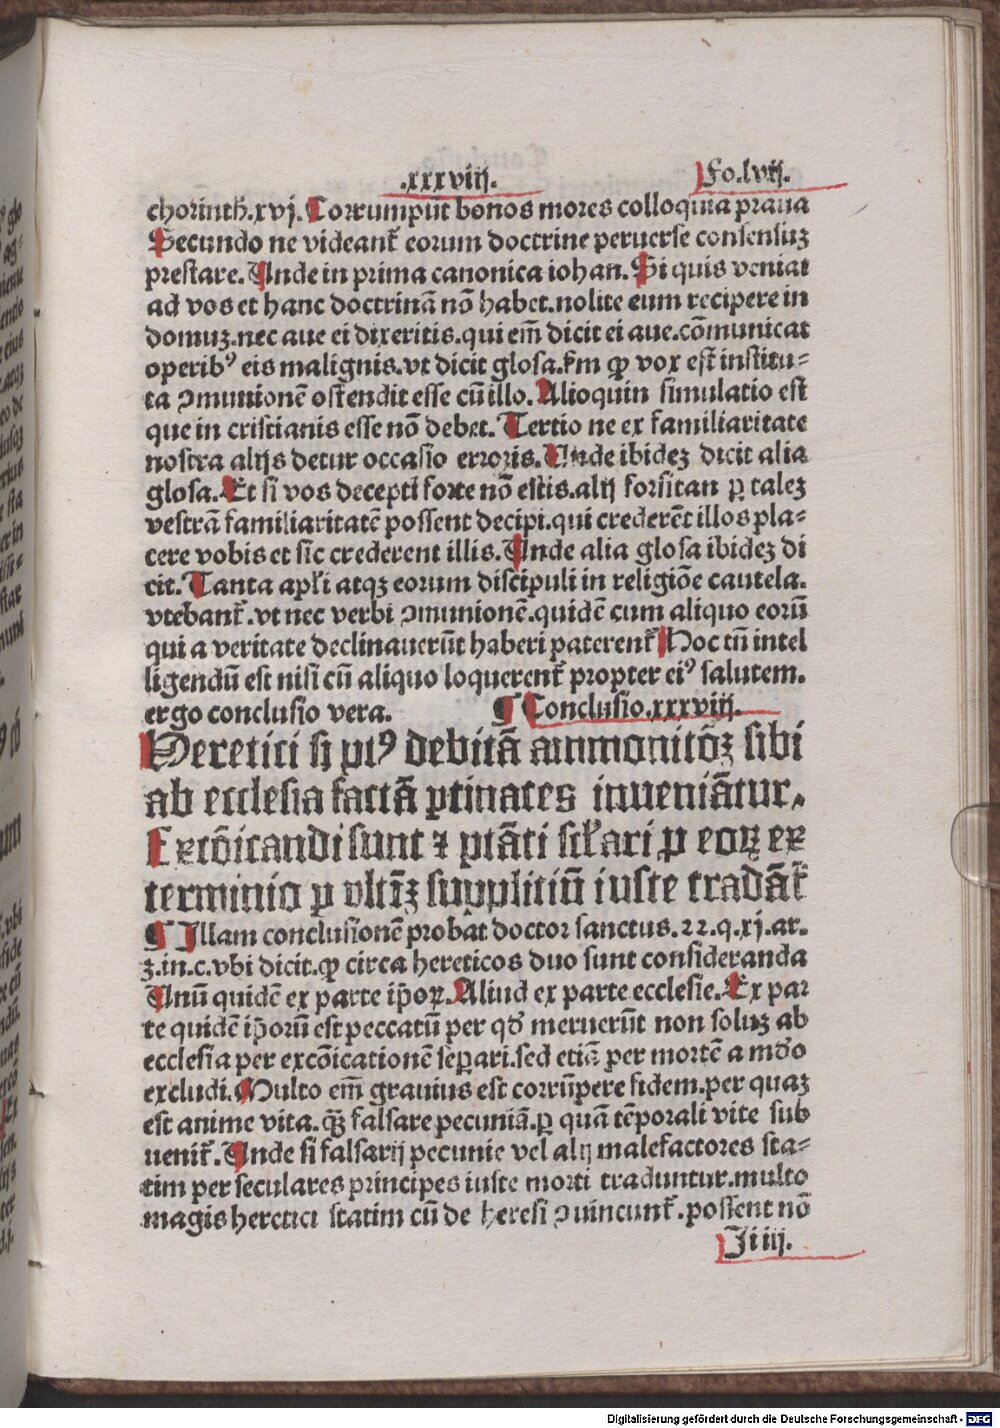 .xxxviij. Fo.lvij.
chorinth.xvj. Corrumpūt bonos mores colloquia praua
Secundo ne videant᷑ eorum doctrine peruerse consensuꝫ
prestare. Unde in prima canonica iohan. Si quis veniat
ad vos et hanc doctrinā nō habet.nolite eum recipere in
domuꝫ.nec aue ei dixeritis.qui em̄ dicit ei aue.cōmunicat
operibꝰ eis malignis.vt dicit glosa.km ꝙ vox est institu⸗
ta ꝯmunionē ostendit esse cū illo. Alioquin simulatio est
que in cristianis esse nō debet. Tertio ne ex familiaritate
nostra alijs detur occasio erroris. Unde ibideꝫ dicit alia
glosa. Et si vos decepti forte nō estis.alij forsitan ꝑ taleꝫ
vestrā familiaritatē possent decipi.qui crederēt illos pla⸗
cere vobis et sic crederent illis. Unde alia glosa ibideꝫ di
cit. Tanta apl̄i atqꝫ eorum discipuli in religiōe cautela.
vtebant᷑.vt nec verbi ꝯmunionē.quidē cum aliquo eorū
qui a veritate declinauerūt haberi paterent᷑ Hoc tn̄ intel
ligendū est nisi cū aliquo loquerent᷑ propter eiꝰ salutem.
ergo conclusio vera. ¶ Conclusio.xxxviij.
Heretici si ptꝰ debitā ammonitōꝫ sibi
ab ecclesia factā ꝑtinaces inueniātur.
Excōicandi sunt ⁊ ptāti scl̄ari ꝑ eoꝝ ex
terminio ꝑ vltīꝫ suppliciū iuste tradāt᷑
¶ Illam conclusionē probat doctor sanctus.22.q.xj.ar.
3.in.c.vbi dicit.ꝙ circa hereticos duo sunt consideranda
Unū quidē ex parte ip̄oꝝ. Aliud ex parte ecclesie. Ex par
te quidē ip̄orū est peccatū per qd̄ meruerūt non soluꝫ ab
ecclesia per excōicationē seꝑari.sed etiā per mortē a mūdo
excludi. Multo em̄ grauius est corrūpere fidem.per quaꝫ
est anime vita.qꝫ̄ falsare pecuniā.ꝑ quā tēporali vite sub
uenit᷑. Unde si falsarij pecunie vel alij malefactores sta⸗
tim per seculares principes iuste morti traduntur.multo
magis heretici statim cū de heresi ꝯuincunt᷑.possent nō
Iiiij.
Digitalisierung gefördert durch die Deutsche Forschungsgemeinschaft - DFG